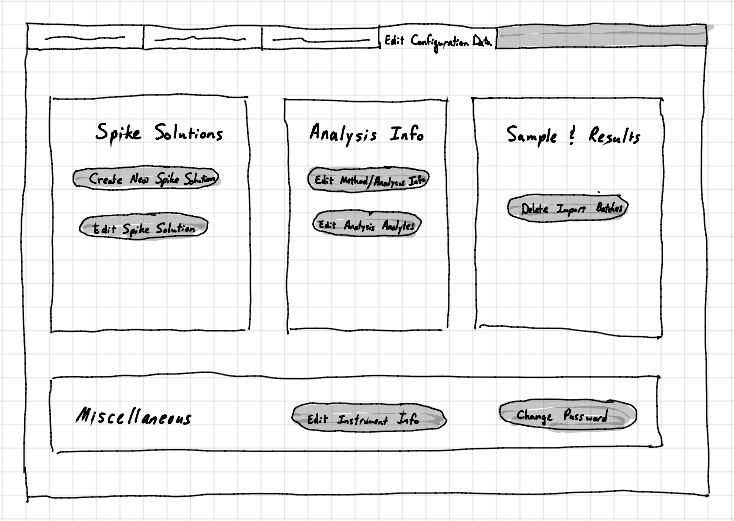 Edit Configuration Data
Spike Solutions
Create New Spike Solution
Edit Spike Solution
Analysis Info
Edit Method/Analysis Info
Edit Analysis Analytes
Sample & Results
Delete Import Batches
Miscellaneous
Edit Instrument Info
Change Password